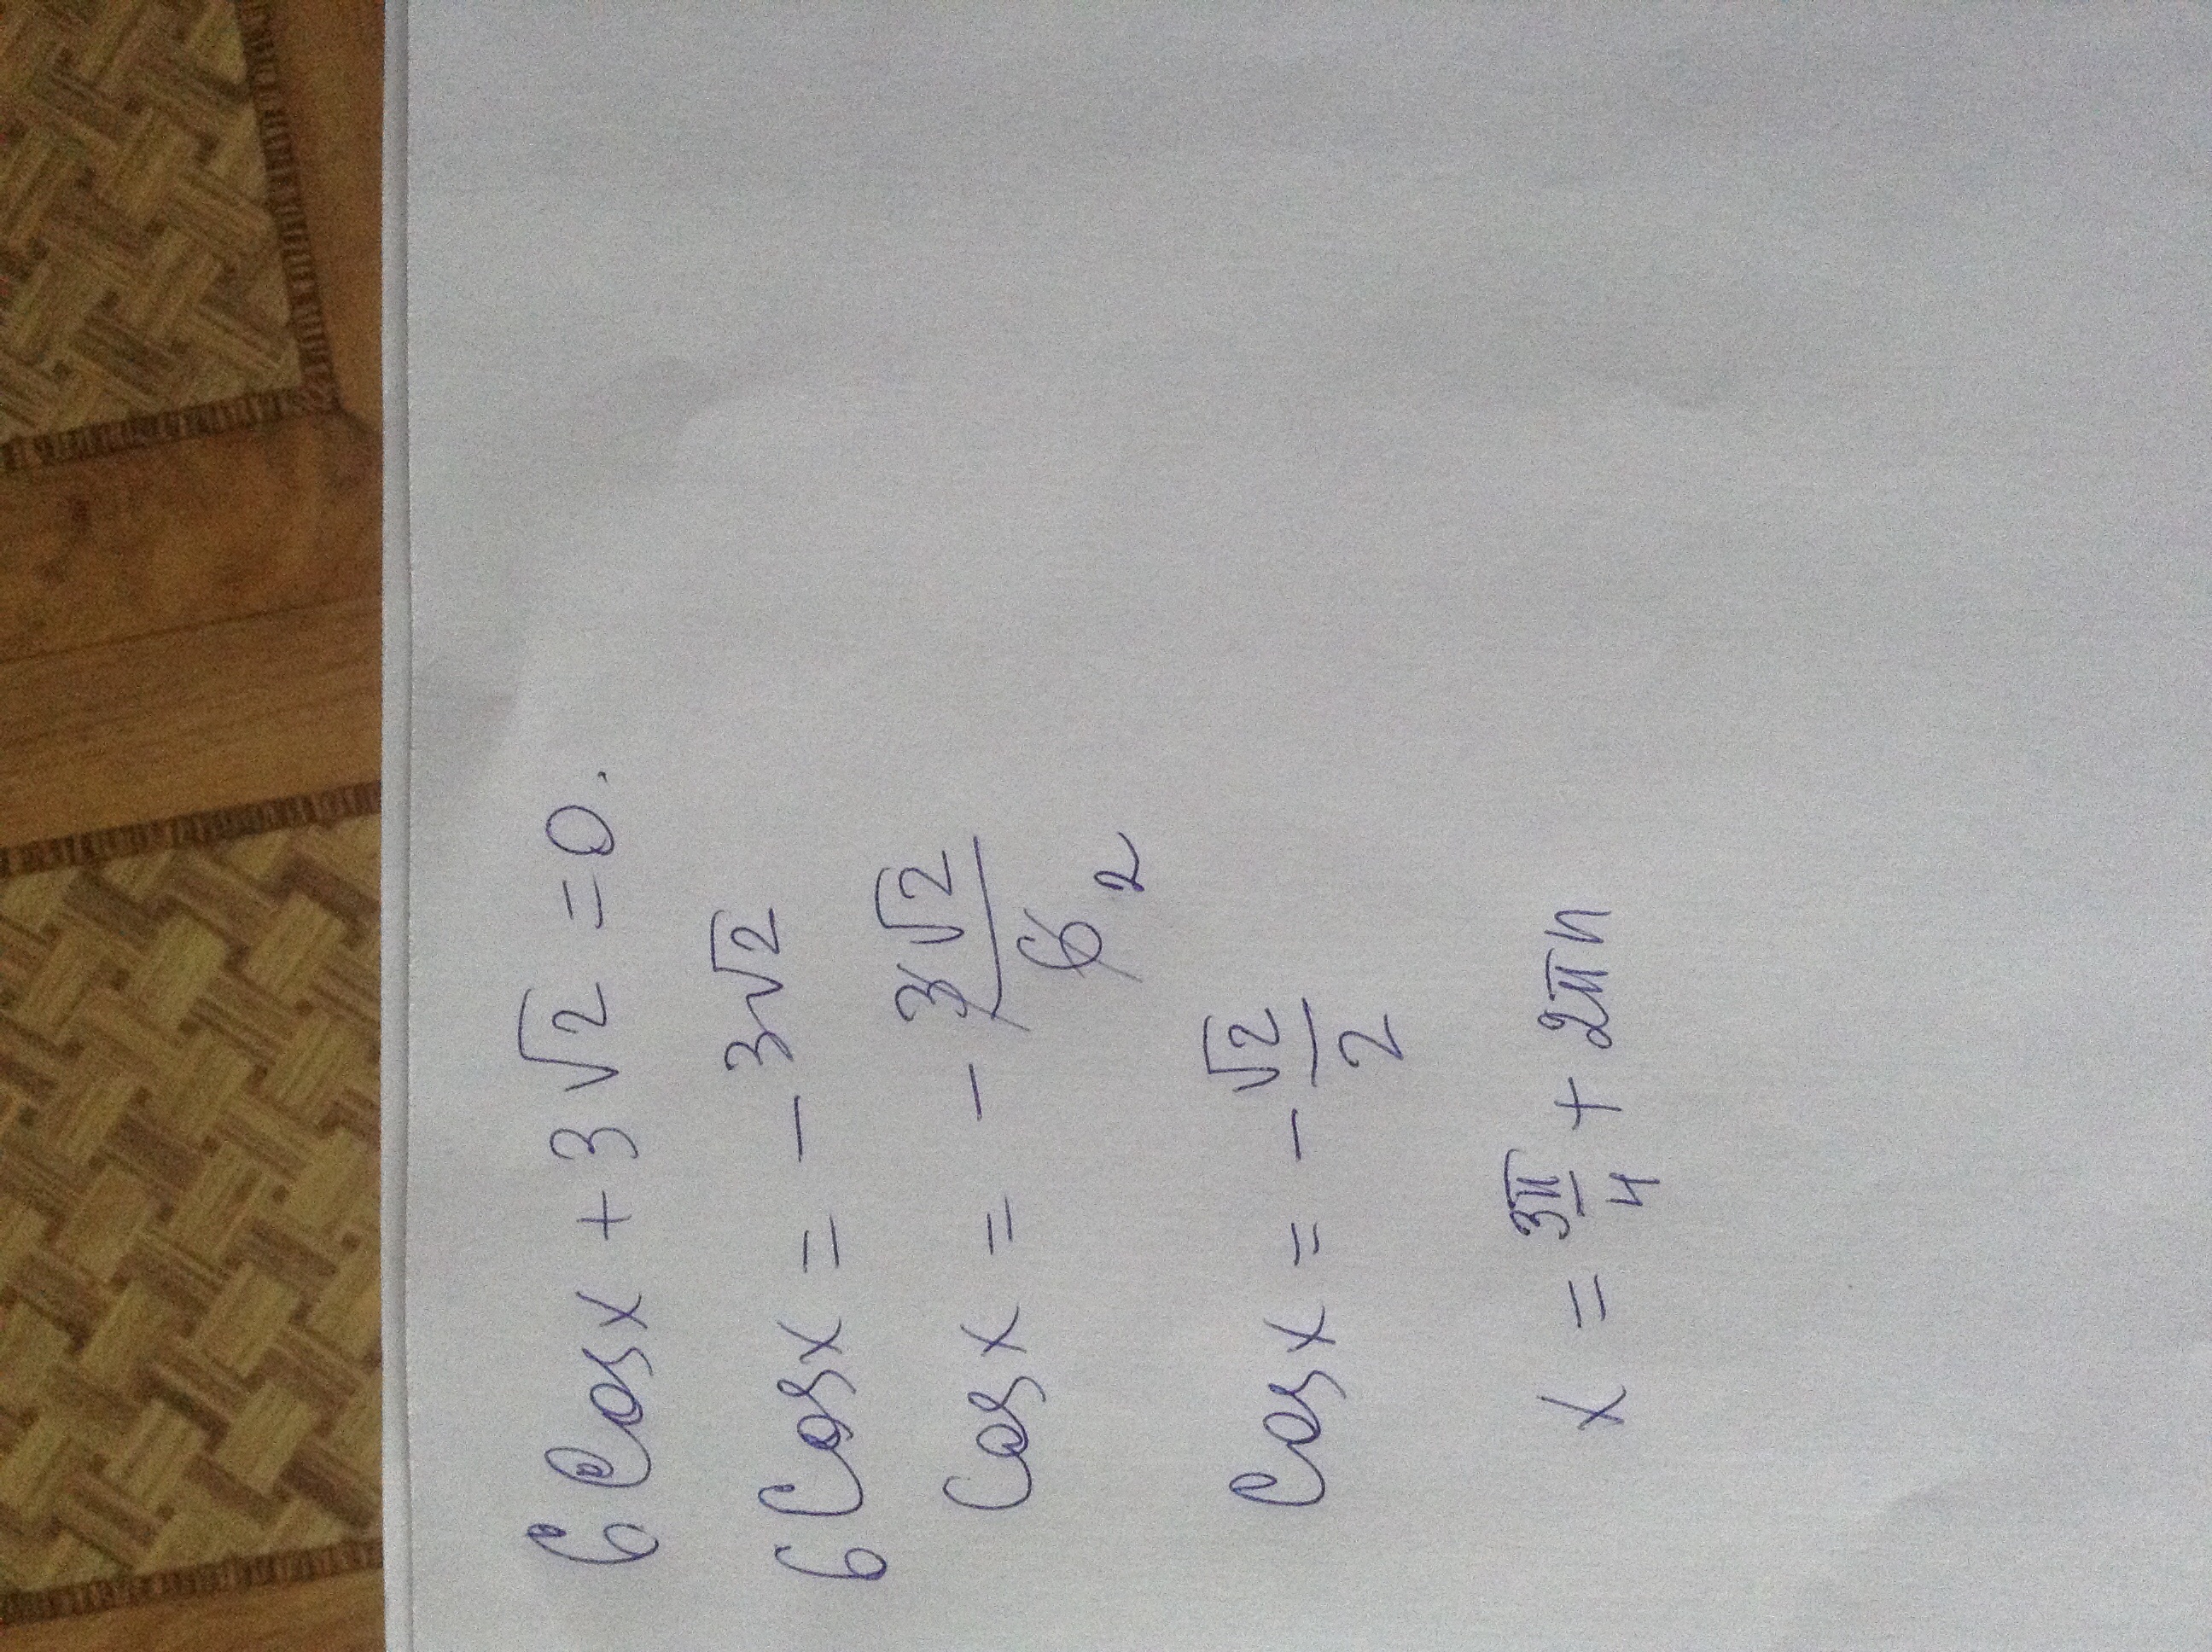 6 Cos x + 3√2 = 0.
6 Cos x = - 3√2
Cos x = - 3√2/6 2
Cos x = - √2/2
x = 3π/4 + 2πn